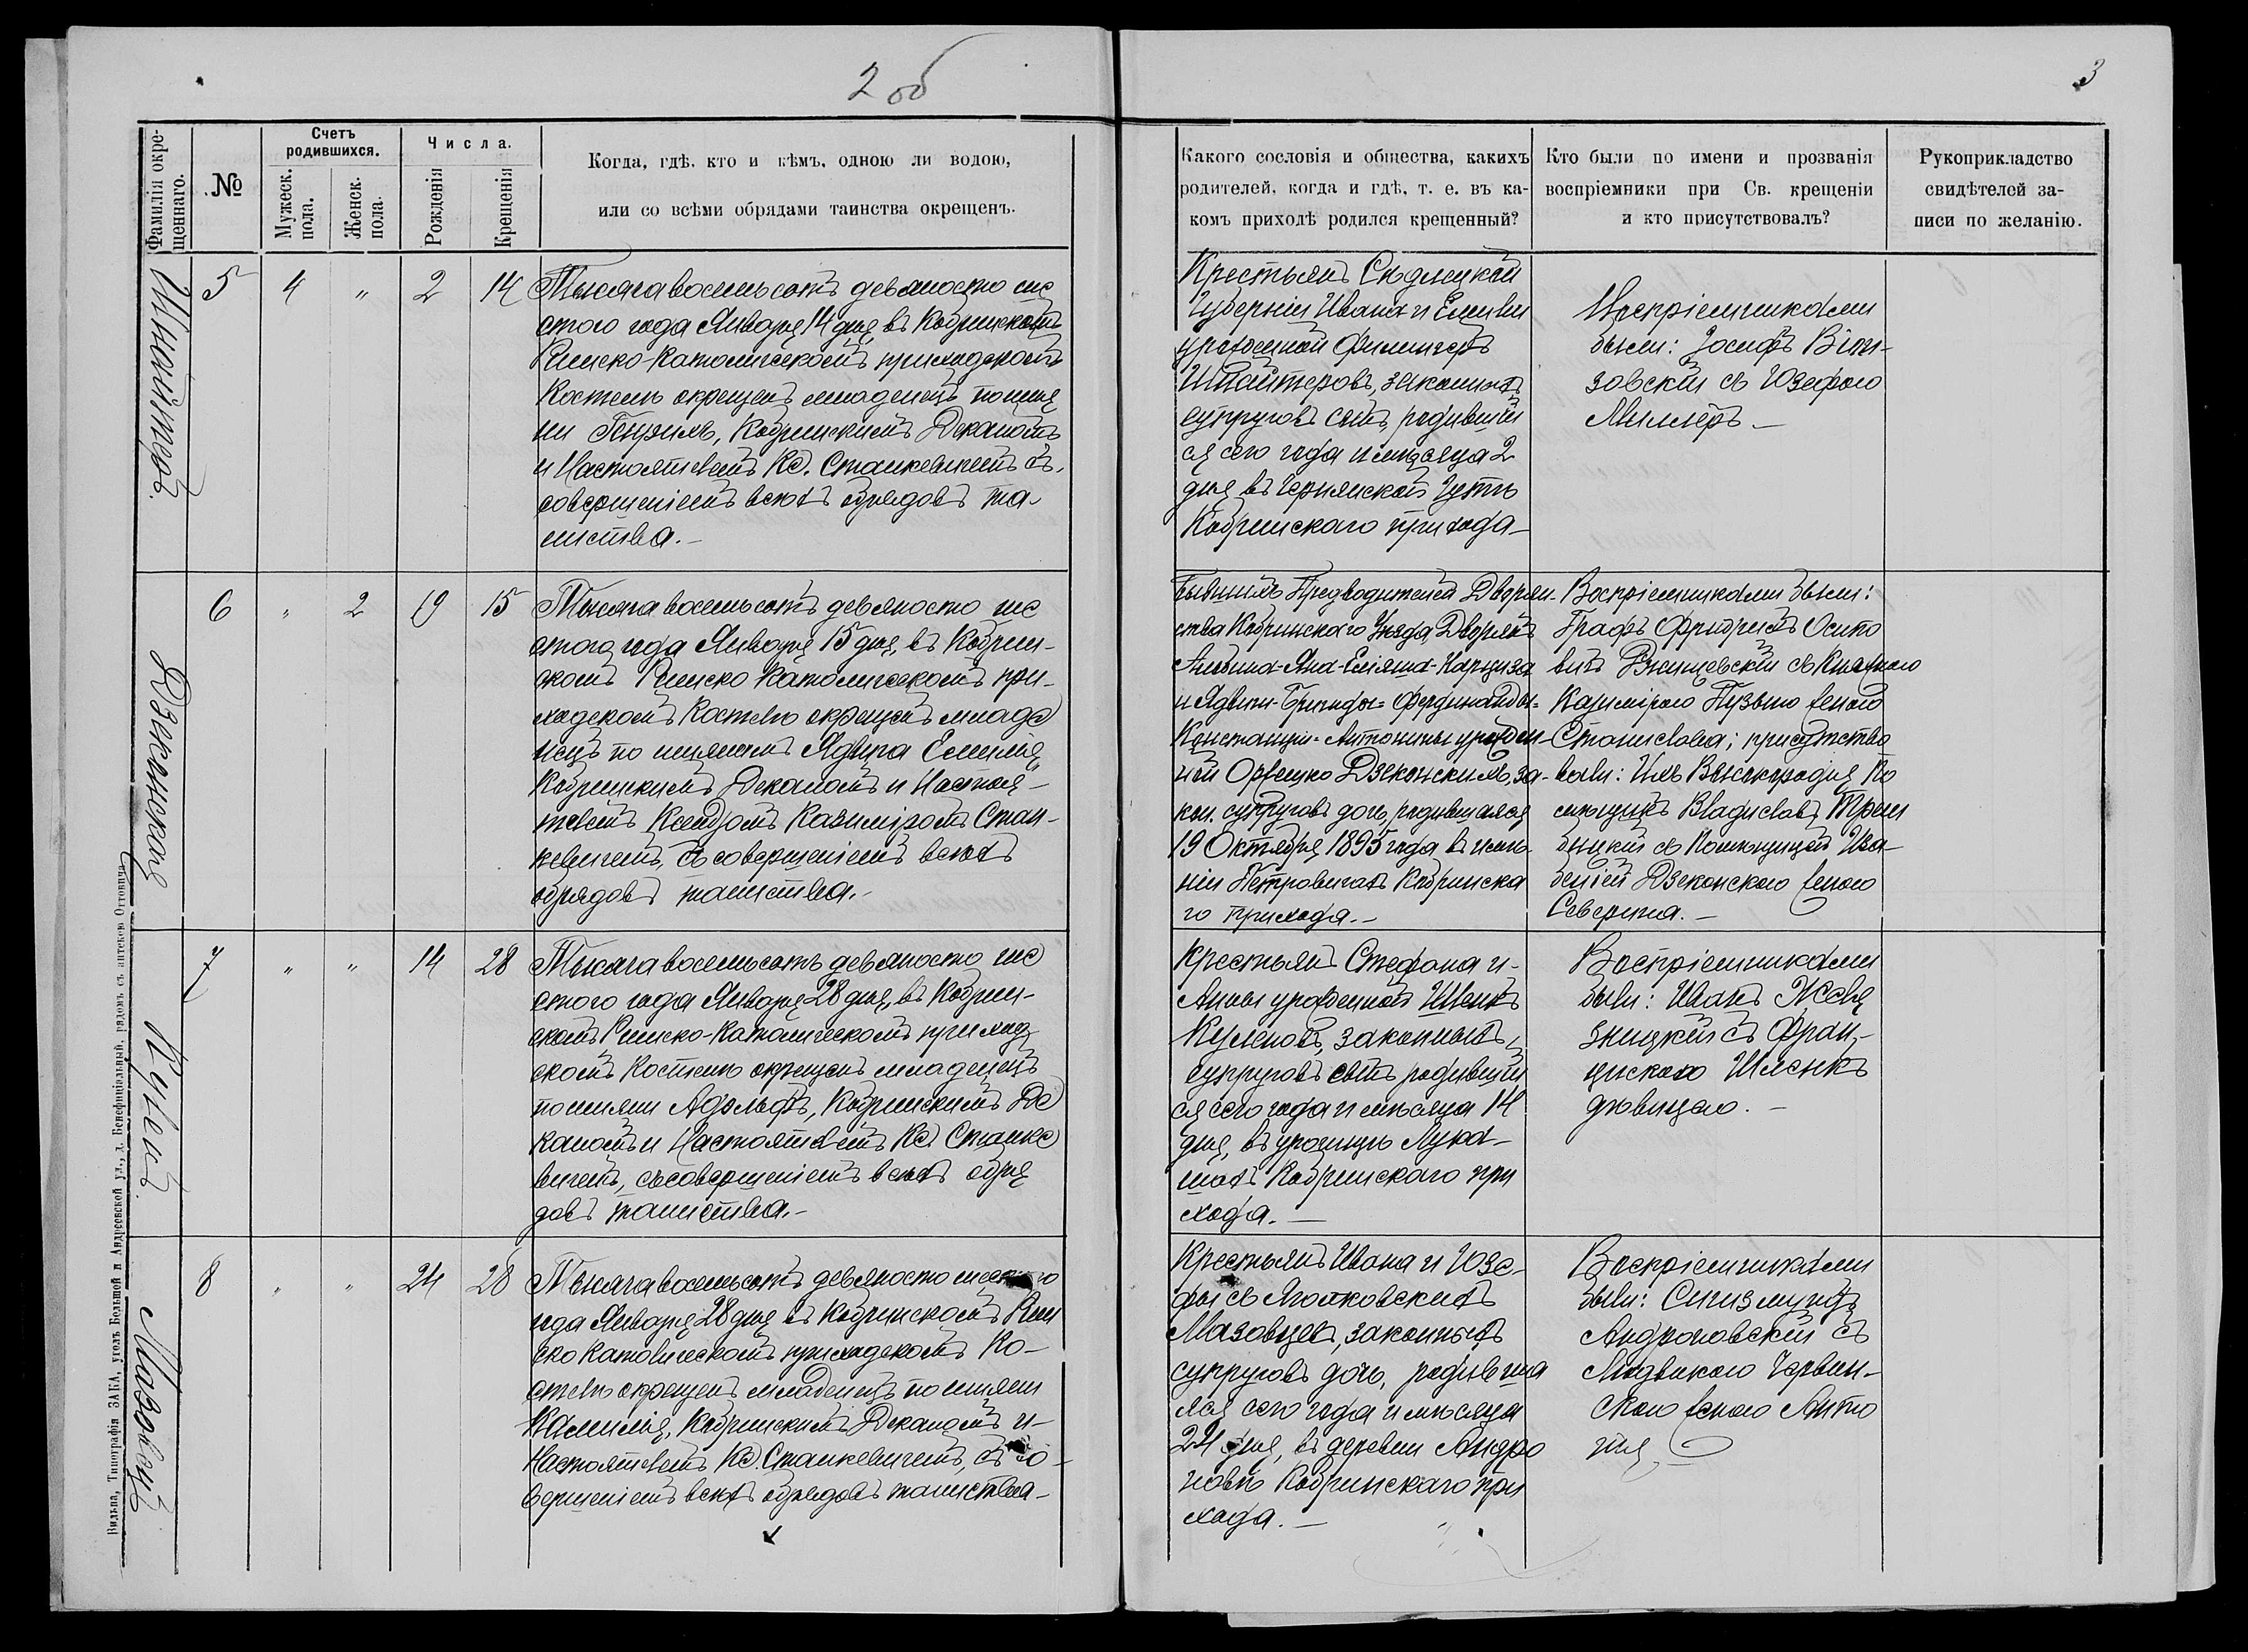 2 об
3
Фамилія окре-
щеннаго.
№
Счетъ
родившихся.
Мужеск.
пола.
Женск.
пола.
Числа.
Рожденія
Крещенія
Когда, гдѣ, кто и кѣмъ, одною ли водою,
или со всѣми обрядами таинства окрещенъ.
Какого сословія и общества, какихъ
родителей, когда и гдѣ, т. е. въ ка-
комъ приходѣ родился крещенный?
Кто были по имени и прозванія
воспріемники при Св. крещеніи
и кто присутствовалъ?
Рукоприкладство
свидѣтелей за-
писи по желанію.
5 4 " 2 14
Тысяча восемьсотъ девяносто ше
стого года Января 14 дня, въ Кобринскомъ
Римско-Католическомъ приходскомъ
Костелѣ окрещенъ младенецъ по име
ни Кобринскимъ Деканомъ
и Настоятелемъ Кс. Станкевичемъ съ
совершеніемъ всѣхъ обрядовъ та-
инства.-
Крестьянъ Сѣдлецкой
Губерніи Ивана и Емиліи
урожденной
Шпайтеровъ, законныхъ
супруговъ сынъ, родивший
ся сего года и мѣсяца 2
дня въ Чернянской Гутѣ
Кобринского прихода-
Воспріемниками
были: Іосифъ
зовскій съ Юзефою
Миллеръ.-
Дзеконская
6 " 2 19 15
Тысяча восемьсотъ девяносто ше
стого года Января 15 дня, въ Кобрин-
скомъ Римско Католическомъ при-
ходскомъ Костелѣ окрещенъ младе
нецъ по именамъ Ядвига Емилія,
Кобринскимъ Деканомъ и Настоя-
телемъ Ксендзомъ Казиміромъ Стан-
кевичемъ, съ совершеніемъ всѣхъ
обрядовъ таинства.-
Бывшимъ Предводителей Дворян-
ства Кобринского Уѣзда, Дворянъ
и Ядвиги-Бригиды-Фердинанды-
Констанціи-Антонины урожден-
ной Оржешко Дзеконскихъ, за-
кон. супруговъ дочь, родившаяся
19 Октября 1895 года въ имѣ-
ніи Петровичахъ Кобринска
го прихода.-
Воспріемниками были:
Графъ Фридрихъ Осипо
вичъ съ Княжною
Казимірою Пузыно женою
Станислава; присутство
вали: Ихъ Высокородія По
мѣщикъ Владиславъ Трем
бицкій съ Помѣщицей Иза-
беллей Дзеконскою женою
Северина.-
Кулей
7 " " 14 28
Тысяча восемьсотъ девяносто ше
стого года Января 28 дня, въ Кобрин-
скомъ Римско-Католическомъ приход
скомъ Костелѣ окрещенъ младенецъ
по имени Адольфъ, Кобринскимъ Де
каномъ и Настоятелемъ Кс. Станке
вичемъ, съ совершеніемъ всѣхъ обря
довъ таинства.-
Крестьянъ Стефана и-
Анны урожденной Шленкъ
законныхъ
супруговъ сынъ родивший
ся сего года и мѣсяца 14
дня, въ урочищѣ Лука-
шахъ Кобринского при
хода.-
Воспріемниками
были: Иванъ
съ Фран-
цискою Шленкъ
дѣвицею.-
Мазовецъ
8 " " 24 28
Тысяча восемьсотъ девяносто шестого
года Января 28 дня въ Кобринскомъ Рим
ско Католическомъ приходскомъ Ко-
стелѣ окрещенъ младенецъ по имени
Камилія, Кобринскимъ Деканомъ и-
Настоятелемъ Кс. Станкевичемъ, съ со-
вершеніемъ всѣхъ обрядовъ таинства-
Крестьянъ Ивана и Юзе-
фы съ
Мазовцевъ, законныхъ
супруговъ дочь, родивша
яся сего года и мѣсяца
24 дня, въ деревни Андро
новѣ Кобринскаго при
хода.-
Воспріемниками
были: Сигизмундъ
Андроновскій съ
Людвикою Червин-
скою женою Анто
нія.
Вильна, Типографія ЗАКА, уголъ Большой и Андреевской ул., д. Бенефиціальный, рядомъ съ аптекою Оттовича